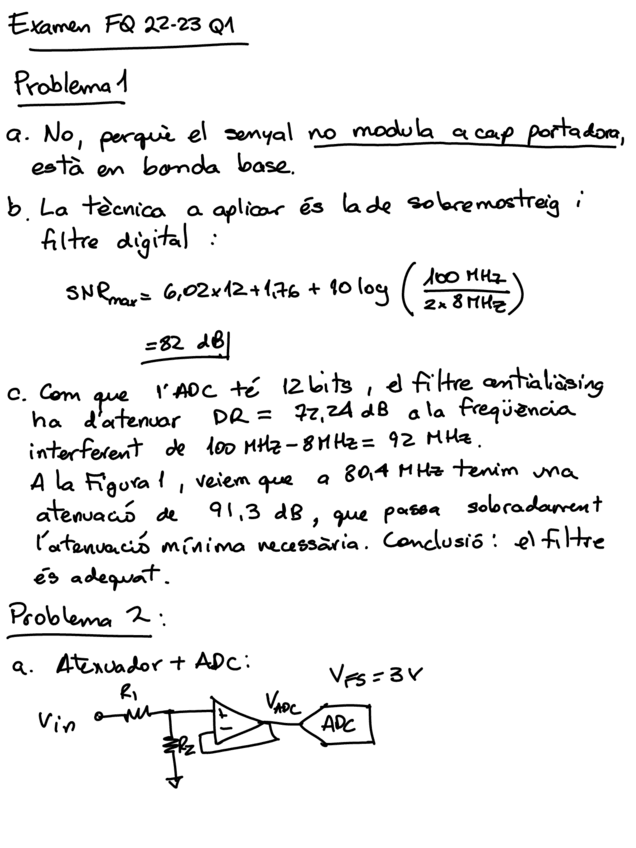 Examen FQ 22-23 Q1
Problema 1
a. No, perquè el senyal no modula a cap portadora,
està en banda base.
b. La tècnica a aplicar és la de sobremostreig i
filtre digital :
SNRmax = 6,02x12+1,76 + 10 log (100 MHz / 2x 8MHz)
= 82 dB
c. Com que l'ADC té 12 bits, el filtre antialiàsing
ha d'atenuar DR = 72,24 dB a la freqüència
interferent de 100 MHz - 8MHz = 92 MHz.
A la Figura 1, veiem que a 80,4 MHz tenim una
atenuació de 91,3 dB, que passa sobradament
l'atenuació mínima necessària. Conclusió: el filtre
és adequat.
Problema 2:
a. Atenuador + ADC:
VFS = 3V
R1
Vin
+
-
VADC
ADC
R2